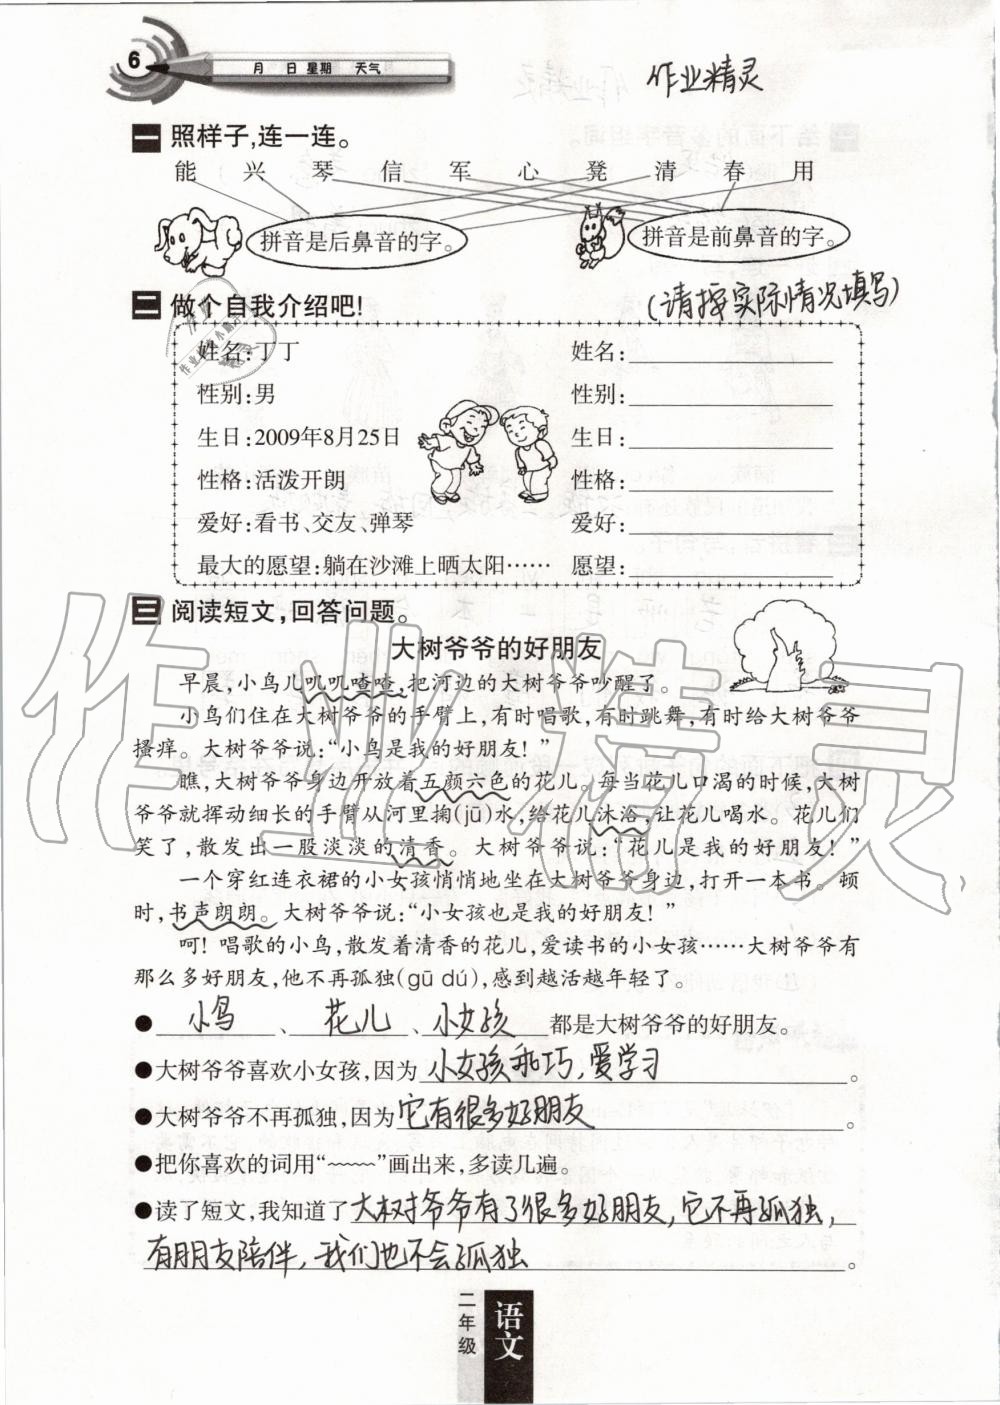 6
月 日 星期 天气
作业精灵
一 照样子,连一连。
能 兴 琴 信 军 心 凳 清 春 用
拼音是后鼻音的字。 拼音是前鼻音的字。
二 做个自我介绍吧!
(请按实际情况填写)
姓名:丁丁 姓名:
性别:男 性别:
生日:2009年8月25日 生日:
性格:活泼开朗 性格:
爱好:看书、交友、弹琴 爱好:
最大的愿望:躺在沙滩上晒太阳…… 愿望:
三 阅读短文,回答问题。
大树爷爷的好朋友
早晨,小鸟儿叽叽喳喳,把河边的大树爷爷吵醒了。
小鸟们住在大树爷爷的手臂上,有时唱歌,有时跳舞,有时给大树爷爷
搔痒。大树爷爷说:“小鸟是我的好朋友!”
瞧,大树爷爷身边开放着五颜六色的花儿。每当花儿口渴的时候,大树
爷爷就挥动细长的手臂从河里掬(jū)水,给花儿沐浴,让花儿喝水。花儿们
笑了,散发出一股淡淡的清香。大树爷爷说:“花儿是我的好朋友!”
一个穿红连衣裙的小女孩悄悄地坐在大树爷爷身边,打开一本书。顿
时,书声朗朗。大树爷爷说:“小女孩也是我的好朋友!”
呵!唱歌的小鸟,散发着清香的花儿,爱读书的小女孩……大树爷爷有
那么多好朋友,他不再孤独(gū dú),感到越活越年轻了。
●小鸟、花儿、小女孩都是大树爷爷的好朋友。
●大树爷爷喜欢小女孩,因为小女孩乖巧,爱学习。
●大树爷爷不再孤独,因为它有很多好朋友。
●把你喜欢的词用“~~~~”画出来,多读几遍。
●读了短文,我知道了大树爷爷有了很多好朋友,它不再孤独,
有朋友陪伴,我们也不会孤独。
二年级
语文
作业精灵